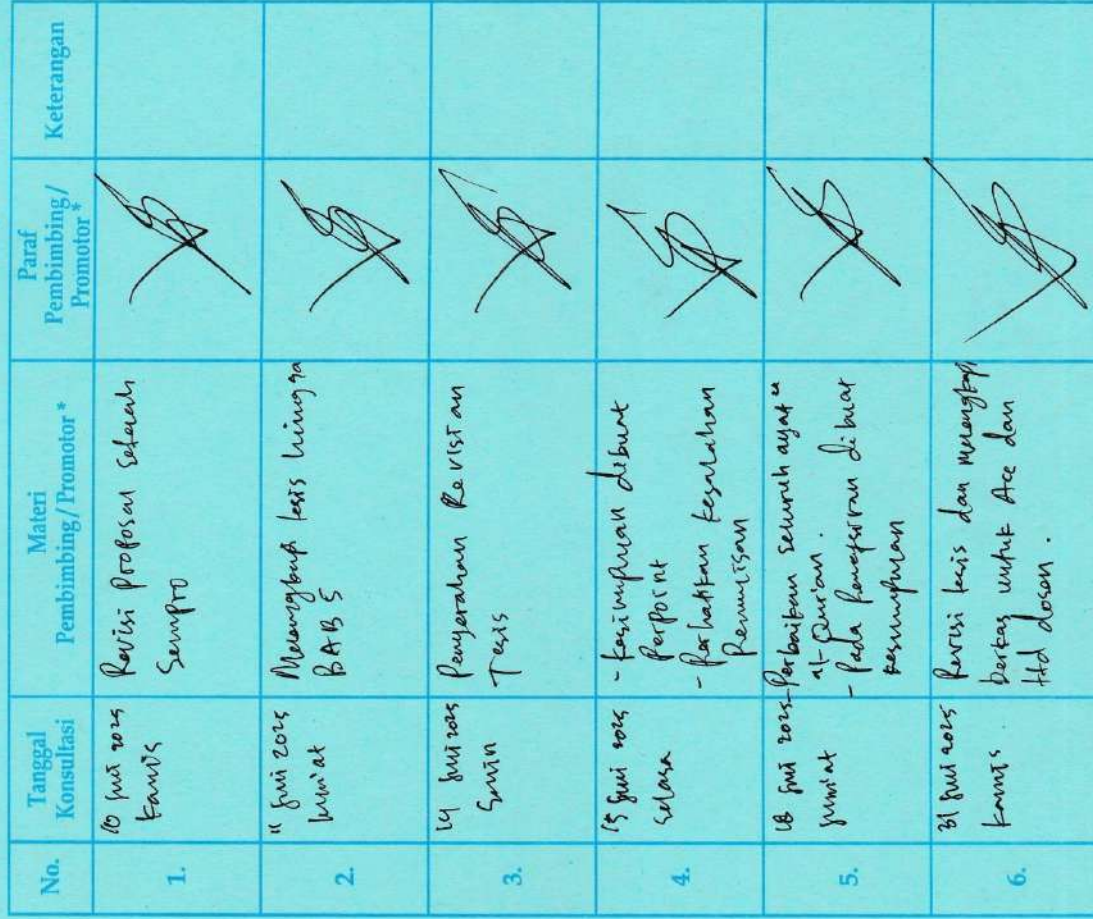 No.
Tanggal
Konsultasi
Materi
Pembimbing / Promotor *
Paraf
Pembimbing /
Promotor *
Keterangan
1.
10 Juli 2025
Kamis
Revisi Proposal setelah
Sempro
2.
11 Juli 2025
Jum'at
Melengkapi tesis hingga
BAB 5
3.
14 Juli 2025
Senin
Penyerahan Revisian
Tesis
4.
15 Juli 2025
Selasa
- Kesimpulan dibuat
Perpoint
- Perhatikan kesalahan
Penulisan
5.
18 Juli 2025
Jum'at
- Perbaikan seluruh ayat"
al-Qur'an.
- Pada Penafsiran dibuat
kesimpulan
6.
31 Juli 2025
Kamis.
Revisi tesis dan melengkapi
berkas untuk Acc dan
ttd dosen.